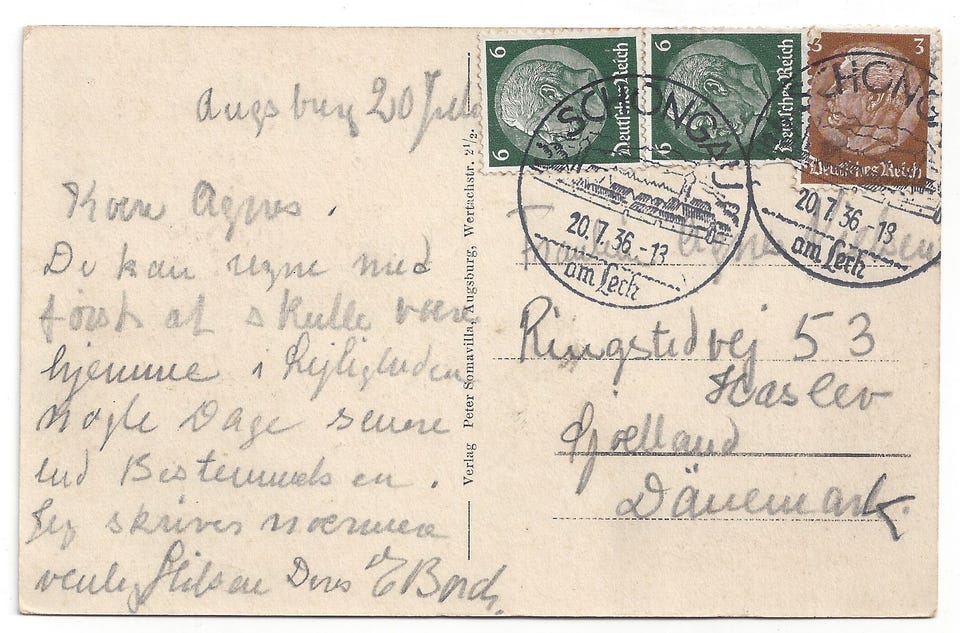 Augsburg 20 Juli
Kære Agnes.
De kan regne med
først at skulle være
hjemme i Lejligheden
nogle Dage senere
end Bestemmelsen.
Jeg skriver nærmere
venlig Hilsen Deres E Borch.
Verlag Peter Somavilla, Augsburg, Wertachstr. 2½.
6 6 Deutsches Reich
6 6 Deutsches Reich
3 3 Deutsches Reich
SCHONGAU
20.7.36.-13
am Lech
SCHONGAU
20.7.36.-13
am Lech
Frøken Agnes Nielsen
Ringstedvej 53
Haslev
Sjælland
Dänemark.